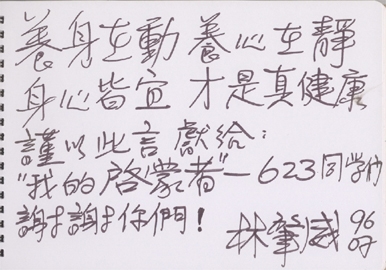 養身在動 養心在靜
身心皆宜 才是真健康
謹以此言獻給：
"我的啓蒙者"—623同学们
謝謝你們！
林肇威 96 07